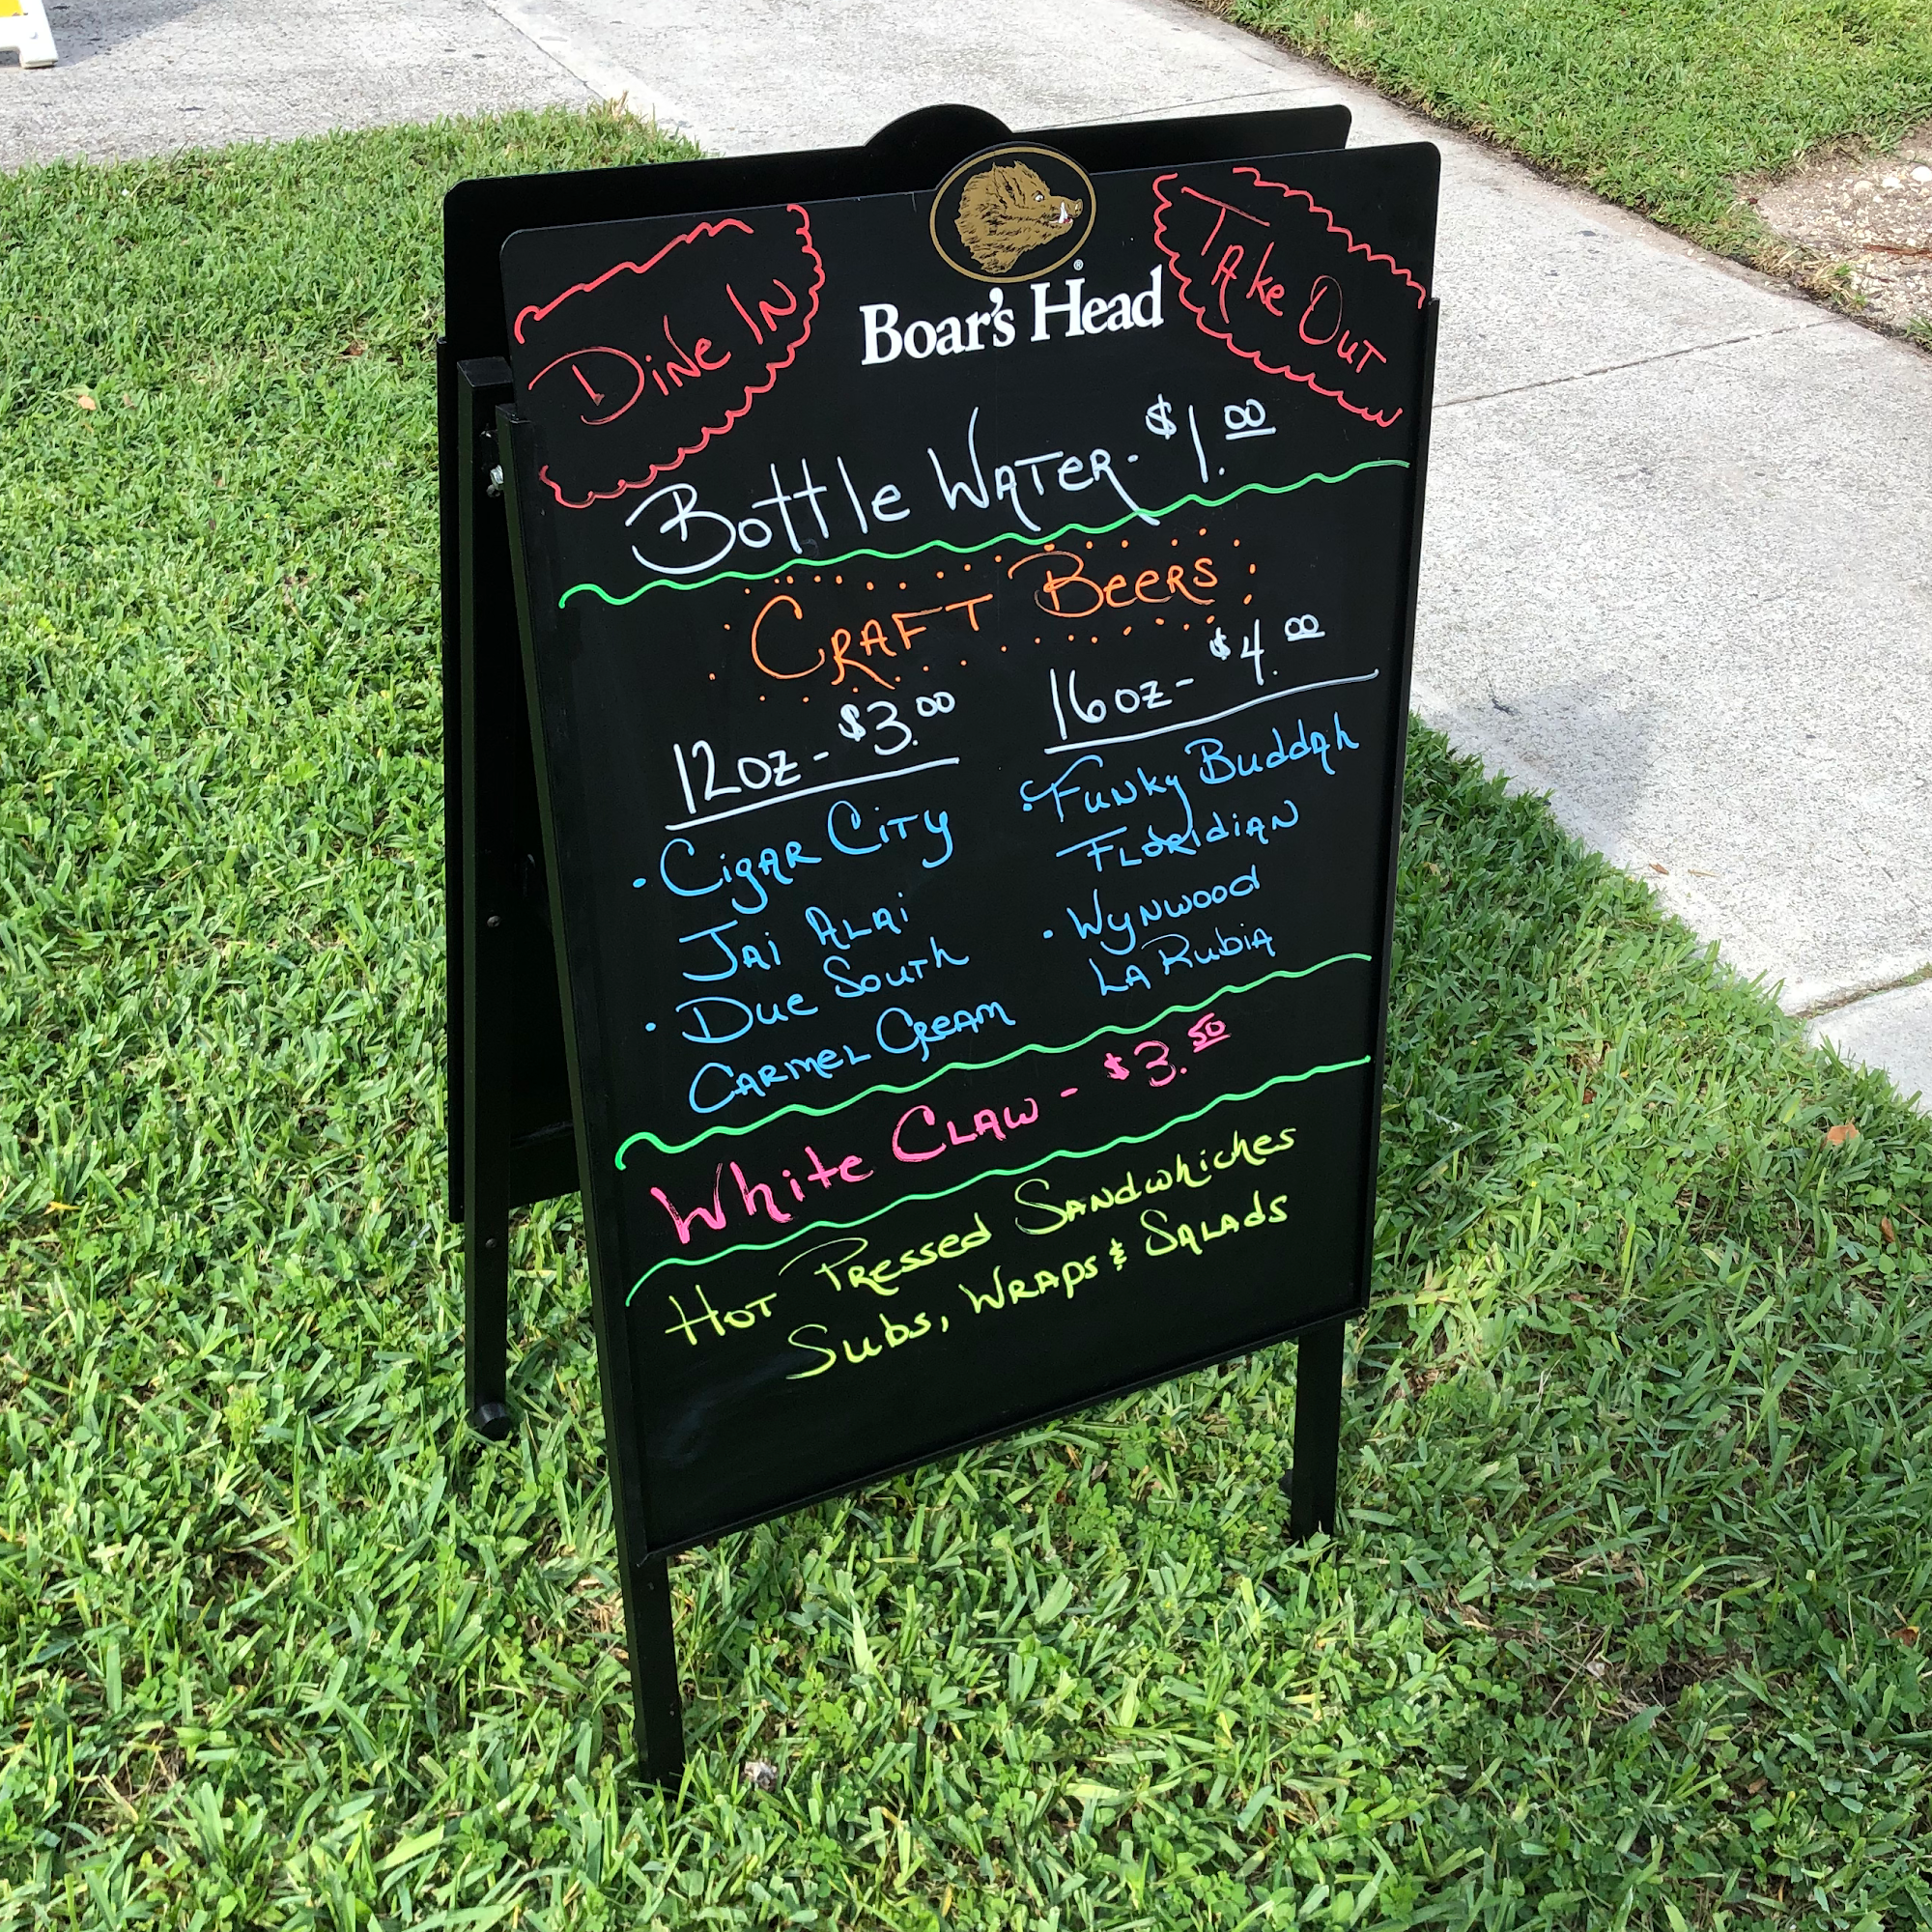 Dine In
Take Out
Boar's Head®
Bottle Water - $1.00
Craft Beers
12oz - $3.00
• Cigar City
Jai Alai
• Due South
Carmel Cream
16oz - $4.00
• Funky Buddah
Floridian
• Wynwood
La Rubia
White Claw - $3.50
Hot Pressed Sandwhiches
Subs, Wraps & Salads